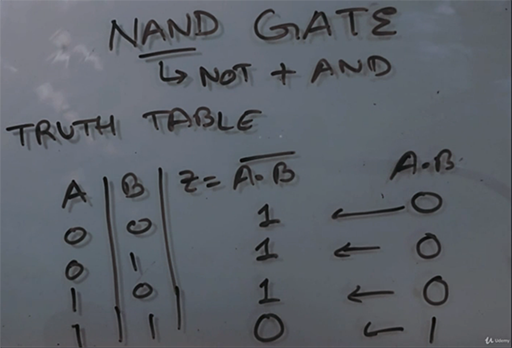 NAND GATE
↳ NOT + AND
TRUTH TABLE
A | B | Z = A̅·̅B̅ A·B
0 0 1 ← 0
0 1 1 ← 0
1 0 1 ← 0
1 1 0 ← 1
Udemy